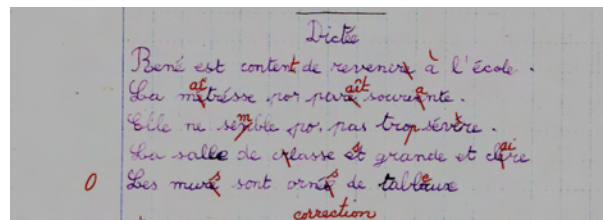 Dictée
René est content de revenire à l'école.
La mètrésse por paré souriente.
Elle ne senble por pas trop sévère.
La salle de crlasse ét grande et clère
0 Les muré sont orné de tableaux
correction